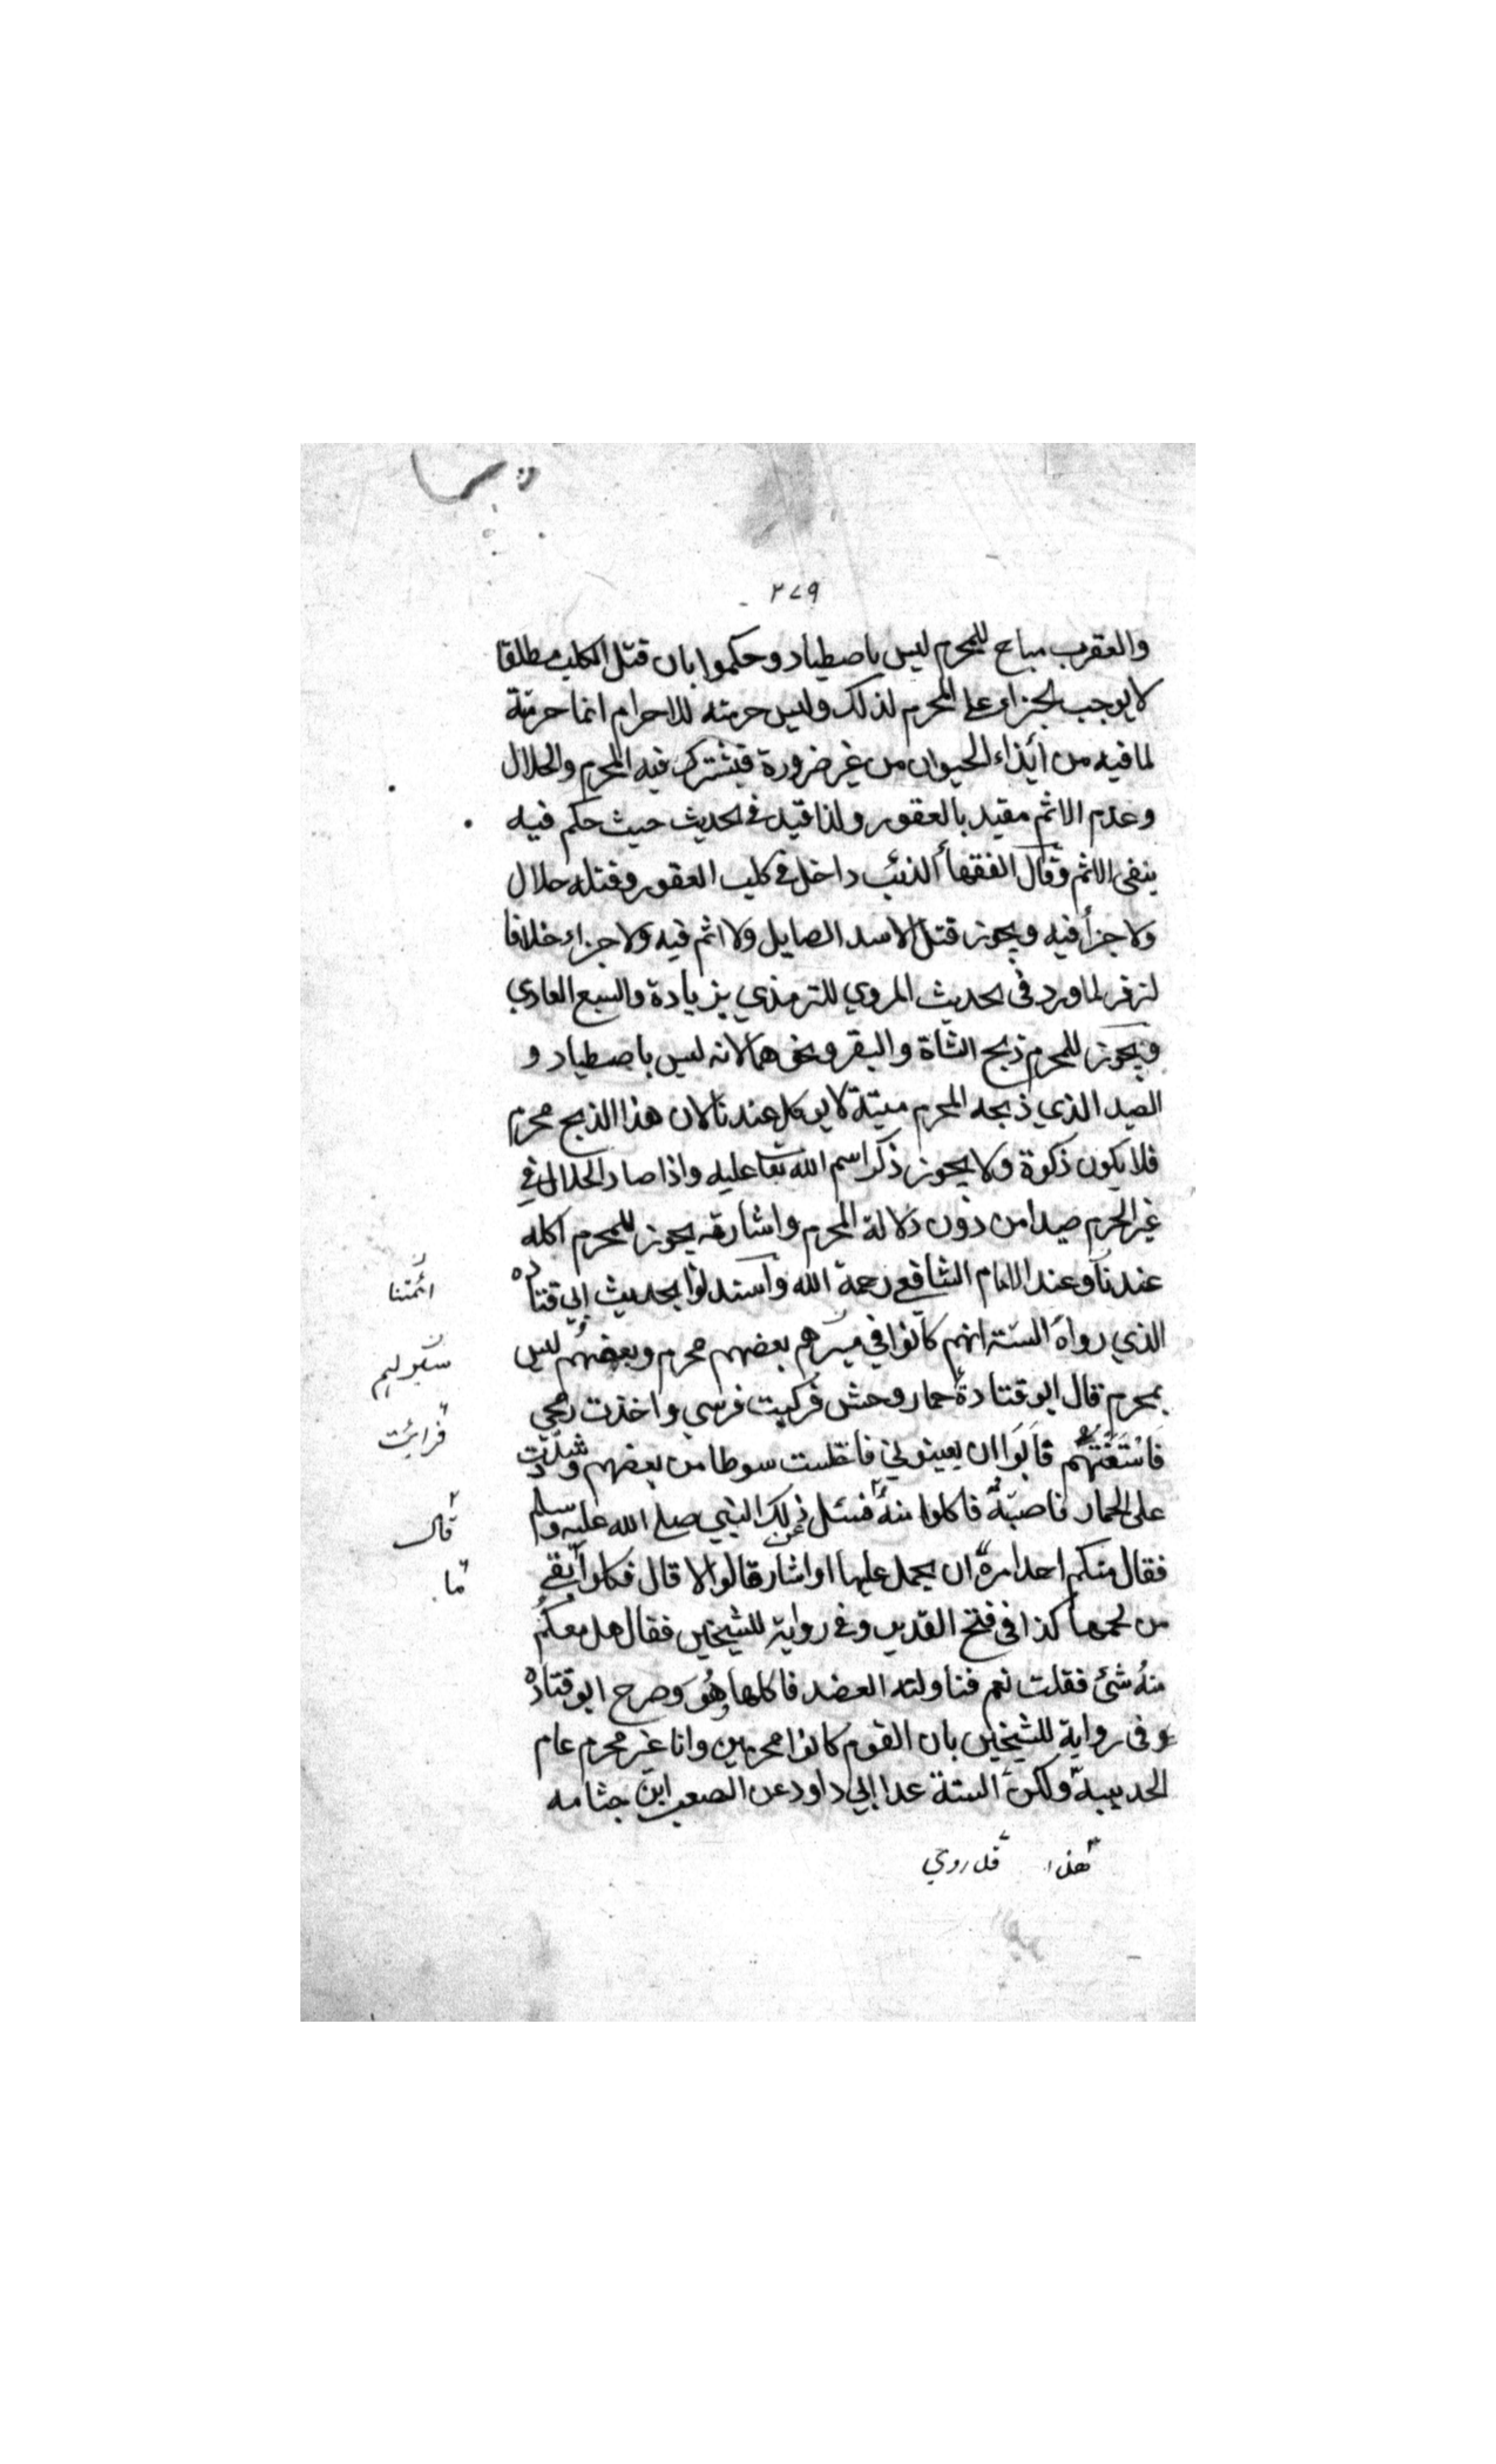 ٢٧٩
والعقرب مباح للمحرم ليس باصطياد وحكموا بان قتل الكلب مطلقا
لا يوجب الجزاء على المحرم لذلك وليس حرمته للاحرام انما حرمته
لما فيه من ايذاء الحيوان من غير ضرورة فيشترك فيه المحرم والحلال
وعدم الاثم مقيد بالعقور ولذا قيد في الحديث حيث حكم فيه
بنفي الاثم وقال الفقهأ الذئب داخل في كلب العقور وقتله حلال
ولا جزأ فيه ويجوز قتل الاسد الصايل ولا اثم فيه ولا جزاء خلافا
لزفر لما ورد في الحديث المروي للترمذي بزيادة والسبع العادي
ويجوز للمحرم ذبح الشاة والبقر ونحوهما لانه ليس باصطياد و
الصيد الذي ذبحه المحرم ميتة لا يوكل عندنا لان هذا الذبح محرم
فلا يكون ذكوة ولا يجوز ذكر اسم الله تعا عليه واذا صاد الحلال في
غير الحرم صيدا من دون دلالة المحرم واشارته يجوز للمحرم اكله
عندنا وعند الامام الشافعي رحمة الله واستدلوا بحديث ابي قتاده
ائمتنا
الذي رواه الستة انهم كانوا في مسيرهم بعضهم محرم وبعضهم ليس
بمحرم قال ابو قتادة حمار وحش فركبت فرسي واخذت رمحي
فرايت
فاستعنتهم فابوا ان يعينوني فاختلست سوطا من بعضهم وشددت
على الحمار فاصبته فاكلوا منه فسئل عن ذلك النبي صلى الله عليه وسلم
قال
فقال منكم احد امره ان يحمل عليها او اشار قالوا لا قال فكلوا بقي
ما
من لحمها كذا في فتح القدير وفي رواية للشيخين فقال هل معكم
منه شئ فقلت نعم فناولته العضد فاكلها وهو وصرح ابو قتاده
وفى رواية للشيخين بان القوم كانوا محرمين وانا غير محرم عام
الحديبية ولكن الستة عدا ابي داود عن الصعب ابن جثامه
هذا قد روي